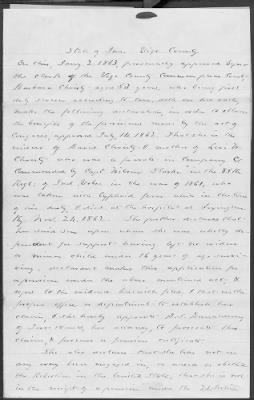 State of Ind. Vigo County
On this, Jany 2. 1863, personally appeared before
the Clerk of the Vigo County Common pleas Court,
Barbara Christy aged 53 years, who being first
duly sworn according to law, doth on her oath,
make the following declaration, in order to obtain
the benefits of the provision made by the act of
Congress, approved July 14 1862. That she is the
widow of Christy & mother of W.
Christy who was a private in Company
Commanded by Capt Wilson in the 85th
Regt of Ind Vols. in the war of 1861, who
was taken with Typhoid fever while in the line
of his duty & died at the hospital at Lexington
Ky. Nov. 24, 1862. She further declares that
her said son upon whom she was wholly de-
pendent for support having left no widow
or minor child under 16 years of age surviv-
ing, declarant makes this application for
a pension under the above mentioned act, &
refers to the evidence herewith filed, & that in the
proper office or department to establish her
claim, & she hereby appoints
of Terre Haute, her attorney, to prosecute this
claim, & procure a pension certificate.
She also declares that she has not in
any way been engaged in, or aided or abetted
the Rebellion in the United States, that she is not
in the receipt of a pension under the